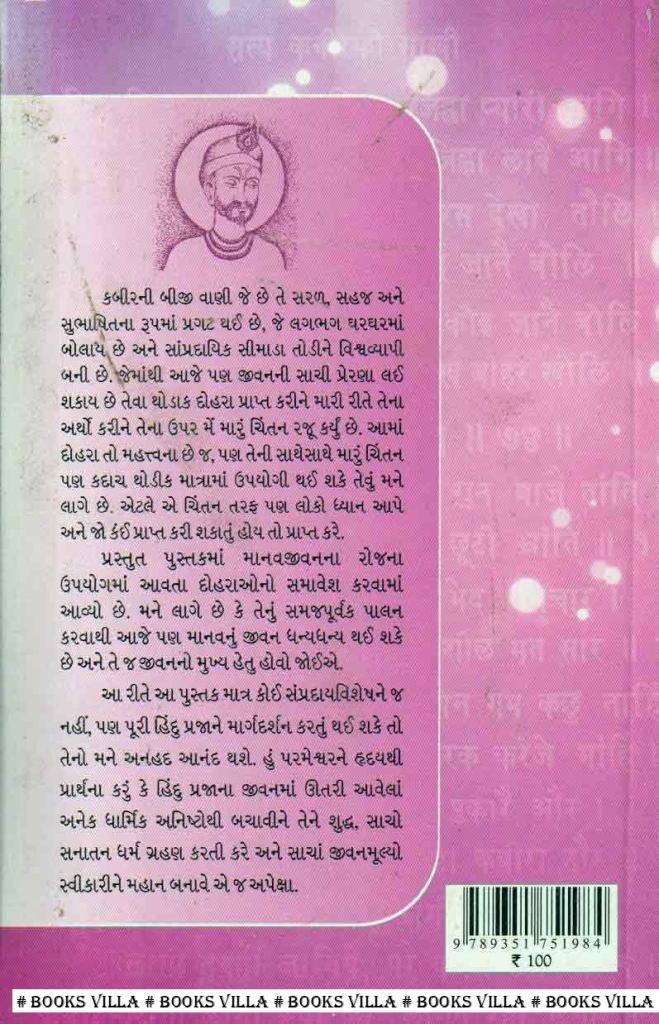 सत्य कबीरकी साखी
કબીરની બીજી વાણી જે છે તે સરળ, સહજ અને
સુભાષિતના રૂપમાં પ્રગટ થઈ છે, જે લગભગ ઘરઘરમાં
બોલાય છે અને સાંપ્રદાયિક સીમાડા તોડીને વિશ્વવ્યાપી
બની છે. જેમાંથી આજે પણ જીવનની સાચી પ્રેરણા લઈ
શકાય છે તેવા થોડાક દોહરા પ્રાપ્ત કરીને મારી રીતે તેના
અર્થો કરીને તેના ઉપર મેં મારું ચિંતન રજૂ કર્યું છે. આમાં
દોહરા તો મહત્ત્વના છે જ, પણ તેની સાથેસાથે મારું ચિંતન
પણ કદાચ થોડીક માત્રામાં ઉપયોગી થઈ શકે તેવું મને
લાગે છે. એટલે એ ચિંતન તરફ પણ લોકો ધ્યાન આપે
અને જો કંઈ પ્રાપ્ત કરી શકાતું હોય તો પ્રાપ્ત કરે.
પ્રસ્તુત પુસ્તકમાં માનવજીવનના રોજના
ઉપયોગમાં આવતા દોહરાઓનો સમાવેશ કરવામાં
આવ્યો છે. મને લાગે છે કે તેનું સમજપૂર્વક પાલન
કરવાથી આજે પણ માનવનું જીવન ધન્યધન્ય થઈ શકે
છે અને તે જ જીવનનો મુખ્ય હેતુ હોવો જોઈએ.
આ રીતે આ પુસ્તક માત્ર કોઈ સંપ્રદાયવિશેષને જ
નહીં, પણ પૂરી હિંદુ પ્રજાને માર્ગદર્શન કરતું થઈ શકે તો
તેનો મને અનહદ આનંદ થશે. હું પરમેશ્વરને હૃદયથી
પ્રાર્થના કરું કે હિંદુ પ્રજાના જીવનમાં ઊતરી આવેલાં
અનેક ધાર્મિક અનિષ્ટોથી બચાવીને તેને શુદ્ધ, સાચો
સનાતન ધર્મ ગ્રહણ કરતી કરે અને સાચાં જીવનમૂલ્યો
સ્વીકારીને મહાન બનાવે એ જ અપેક્ષા.
9 789351 751984
₹ 100
# BOOKS VILLA # BOOKS VILLA # BOOKS VILLA # BOOKS VILLA # BOOKS VILLA